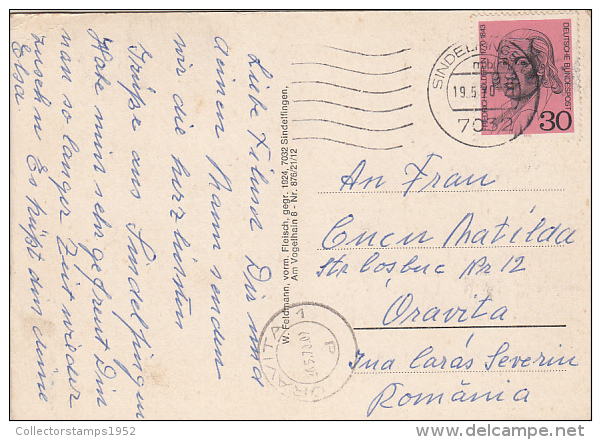 Liebe Filuse Dir und
deinen Mann senden
wir die herzlichsten
Grüße aus Sindelfingen
Habe mich sehr gefreut Dich
nach so langer Zeit wieder
zu sehen Es grüßt dich deine
Elsa
W. Feldmann, vorm. Fleisch, gegr. 1924, 7032 Sindelfingen,
Am Vogelhain 6 - Nr. 876/21/12
SINDELFINGEN
19.5.70
7032
DEUTSCHE BUNDESPOST
30
An Frau
Cucu Matilda
Str Cosbuc Nr 12
Oravita
Jud Caras Severin
România
ORAVITA 1
P
Collectorstamps1952
delcampe.net